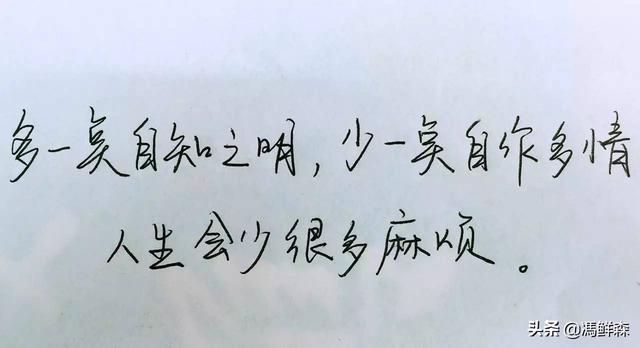 多一点自知之明，少一点自作多情
人生会少很多麻烦。
头条 @馮鲜森